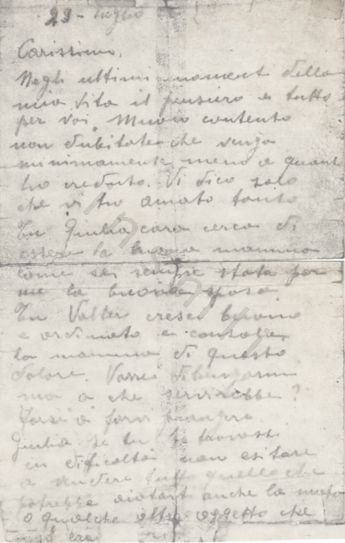 23 - luglio
Carissimi,
Negli ultimi momenti della
mia vita il pensiero è tutto
per voi. Muoio contento
non dubitate che venga
minimamente meno a quanto
ho creduto. Vi dico solo
che vi ho amato tanto
Tu Giulia cara cerca di
essere la buona mamma
come sei sempre stata per
me la buona sposa
Tu Valter cresci buono
e ordinato e consola
la mamma di questo
dolore. Vorrei dilungarmi
ma a che servirebbe?
Forse a farvi piangere
Giulia se tu ti trovassi
in difficoltà non esitare
a vendere tutto quello che
potrebbe aiutarti anche la
o qualche altro oggetto che